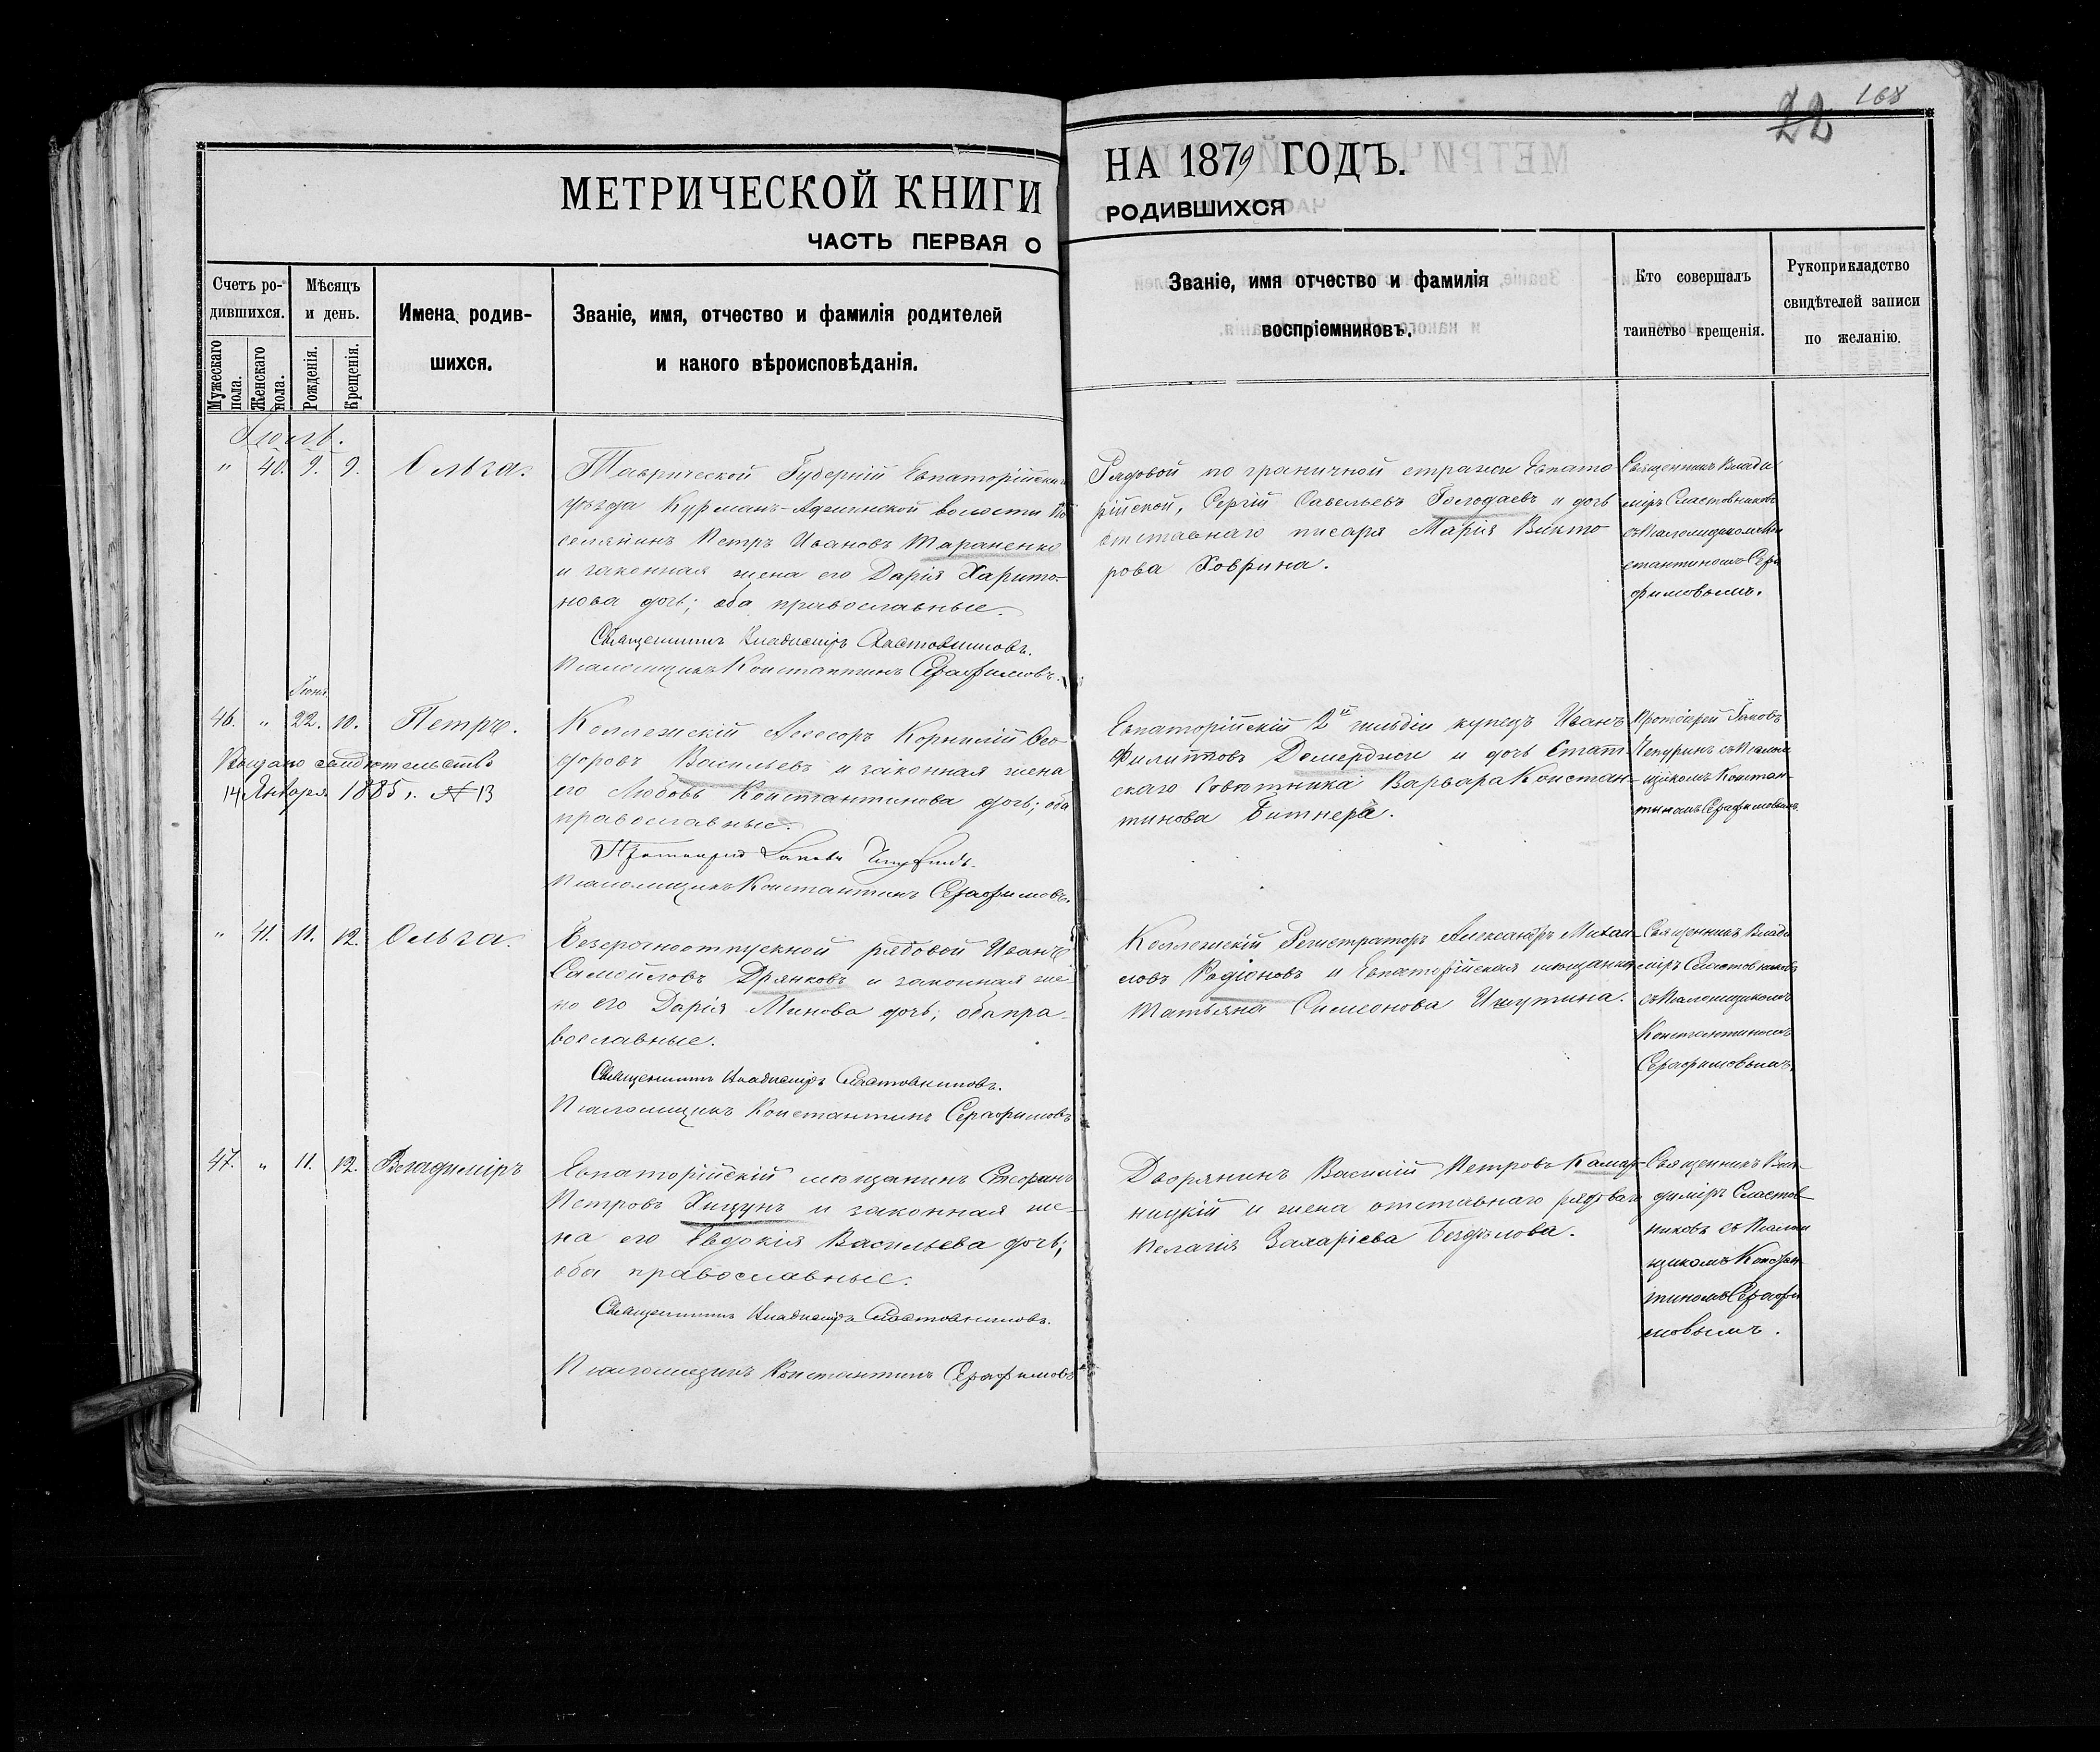 168
22
МЕТРИЧЕСКОЙ КНИГИ
ЧАСТЬ ПЕРВАЯ О
НА 1879 ГОДЪ.
РОДИВШИХСЯ
Счетъ ро-
дившихся.
Мужескаго пола.
Женскаго пола.
Мѣсяцъ
и день.
Рожденія.
Крещенія.
Имена родив-
шихся.
Званіе, имя, отчество и фамилія родителей
и какого вѣроисповѣданія.
Званіе, имя отчество и фамилія
воспріемниковъ.
Кто совершалъ
таинство крещенія.
Рукоприкладство
свидѣтелей записи
по желанію.
" 40. 9. 9. Ольга.
Таврической Губерніи Евпаторійскаго
уѣзда Курманъ-Аджинской волости По
селянинъ Петръ Ивановъ Тараненко
и законная жена его Дарія Харито-
нова дочь; оба православные.
Священникъ Владиміръ Сластовниковъ.
Псаломщикъ Константинъ Серафимовъ.
Рядовой по граничной стражи Евпато
рійской, Сергій Савельевъ Голодаевъ и дочь
отставнаго писаря Марія Викто
рова Ховрина.
Священникъ Влади
міръ Сластовниковъ
съ Псаломщикомъ Кон
стантиномъ Сера
фимовымъ.
Іюня
46. " 22. 10. Петръ.
Выдано свидѣтельство
14 Января 1885 г. № 13
Коллежскій Ассесоръ Корнилій Ѳео
доровъ Васильевъ и законная жена
его Любовь Константинова дочь; оба
православные.
Протоиерей Іаковъ Чепуринъ.
Псаломщикъ Константинъ Серафимовъ.
Евпаторійскій 2й гильдіи купецъ Иванъ
Филиповъ Демерджи и дочь Стат-
скаго Совѣтника Варвара Констан-
тинова Битнера.
Протоіерей Іаковъ
Чепуринъ съ Псалом
щикомъ Констан-
тиномъ Серафимовымъ.
" 41. 11. 12. Ольга.
Безсрочноотпускной рядовой Иванъ
Самойловъ Дрянковъ и законная же-
на его Дарія Минова дочь; оба пра-
вославные.
Священникъ Владиміръ Сластовниковъ.
Псаломщикъ Константинъ Серафимовъ
Коллежскій Регистраторъ Александръ Михаи-
ловъ Родіоновъ и Евпаторійская мѣщанка
Татьяна Симеонова Ишутина.
Священникъ Влади
міръ Сластовниковъ
съ Псаломщикомъ
Константиномъ
Серафимовымъ.
47. " 11. 12. Владиміръ
Евпаторійскій мѣщанинъ
Петровъ Хищунъ и законная же-
на его Евдокія Васильева дочь;
оба православные.
Священникъ Владиміръ Сластовниковъ.
Псаломщикъ Константинъ Серафимовъ
Дворянинъ Василій Петровъ Камар-
ницкій и жена отставнаго рядоваго
Пелагія Захаріева Бездѣлова.
Священникъ Вла-
диміръ Сластов-
никовъ съ Псалом
щикомъ Констан-
тиномъ Серафи
мовымъ.